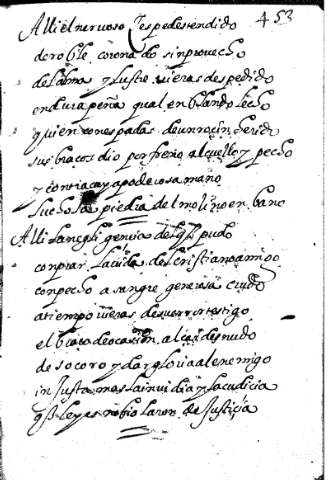 453
Alli el nervoso cespedes tendido
de roble coronado sin provecho
del alma y lustre vieras despedido
en dura peña qual en blando lecho
quien con espadas de un rocin
sus braços dio por freno al cuello y pecho
y con riaca y apoderosa mano
la piedra del molino en bano
Alli la negligencia del q̃ pudo
conprar la cuida del cristiano amigo
con pecho a sangre generosa crudo
a tiempo vieras de su error testigo
el braço de ocasion, al cas desnudo
de socorro y dar gloria al enemigo
injusta mas la invidia y la cudicia
q̃ leyes no biolaron de Justiçia